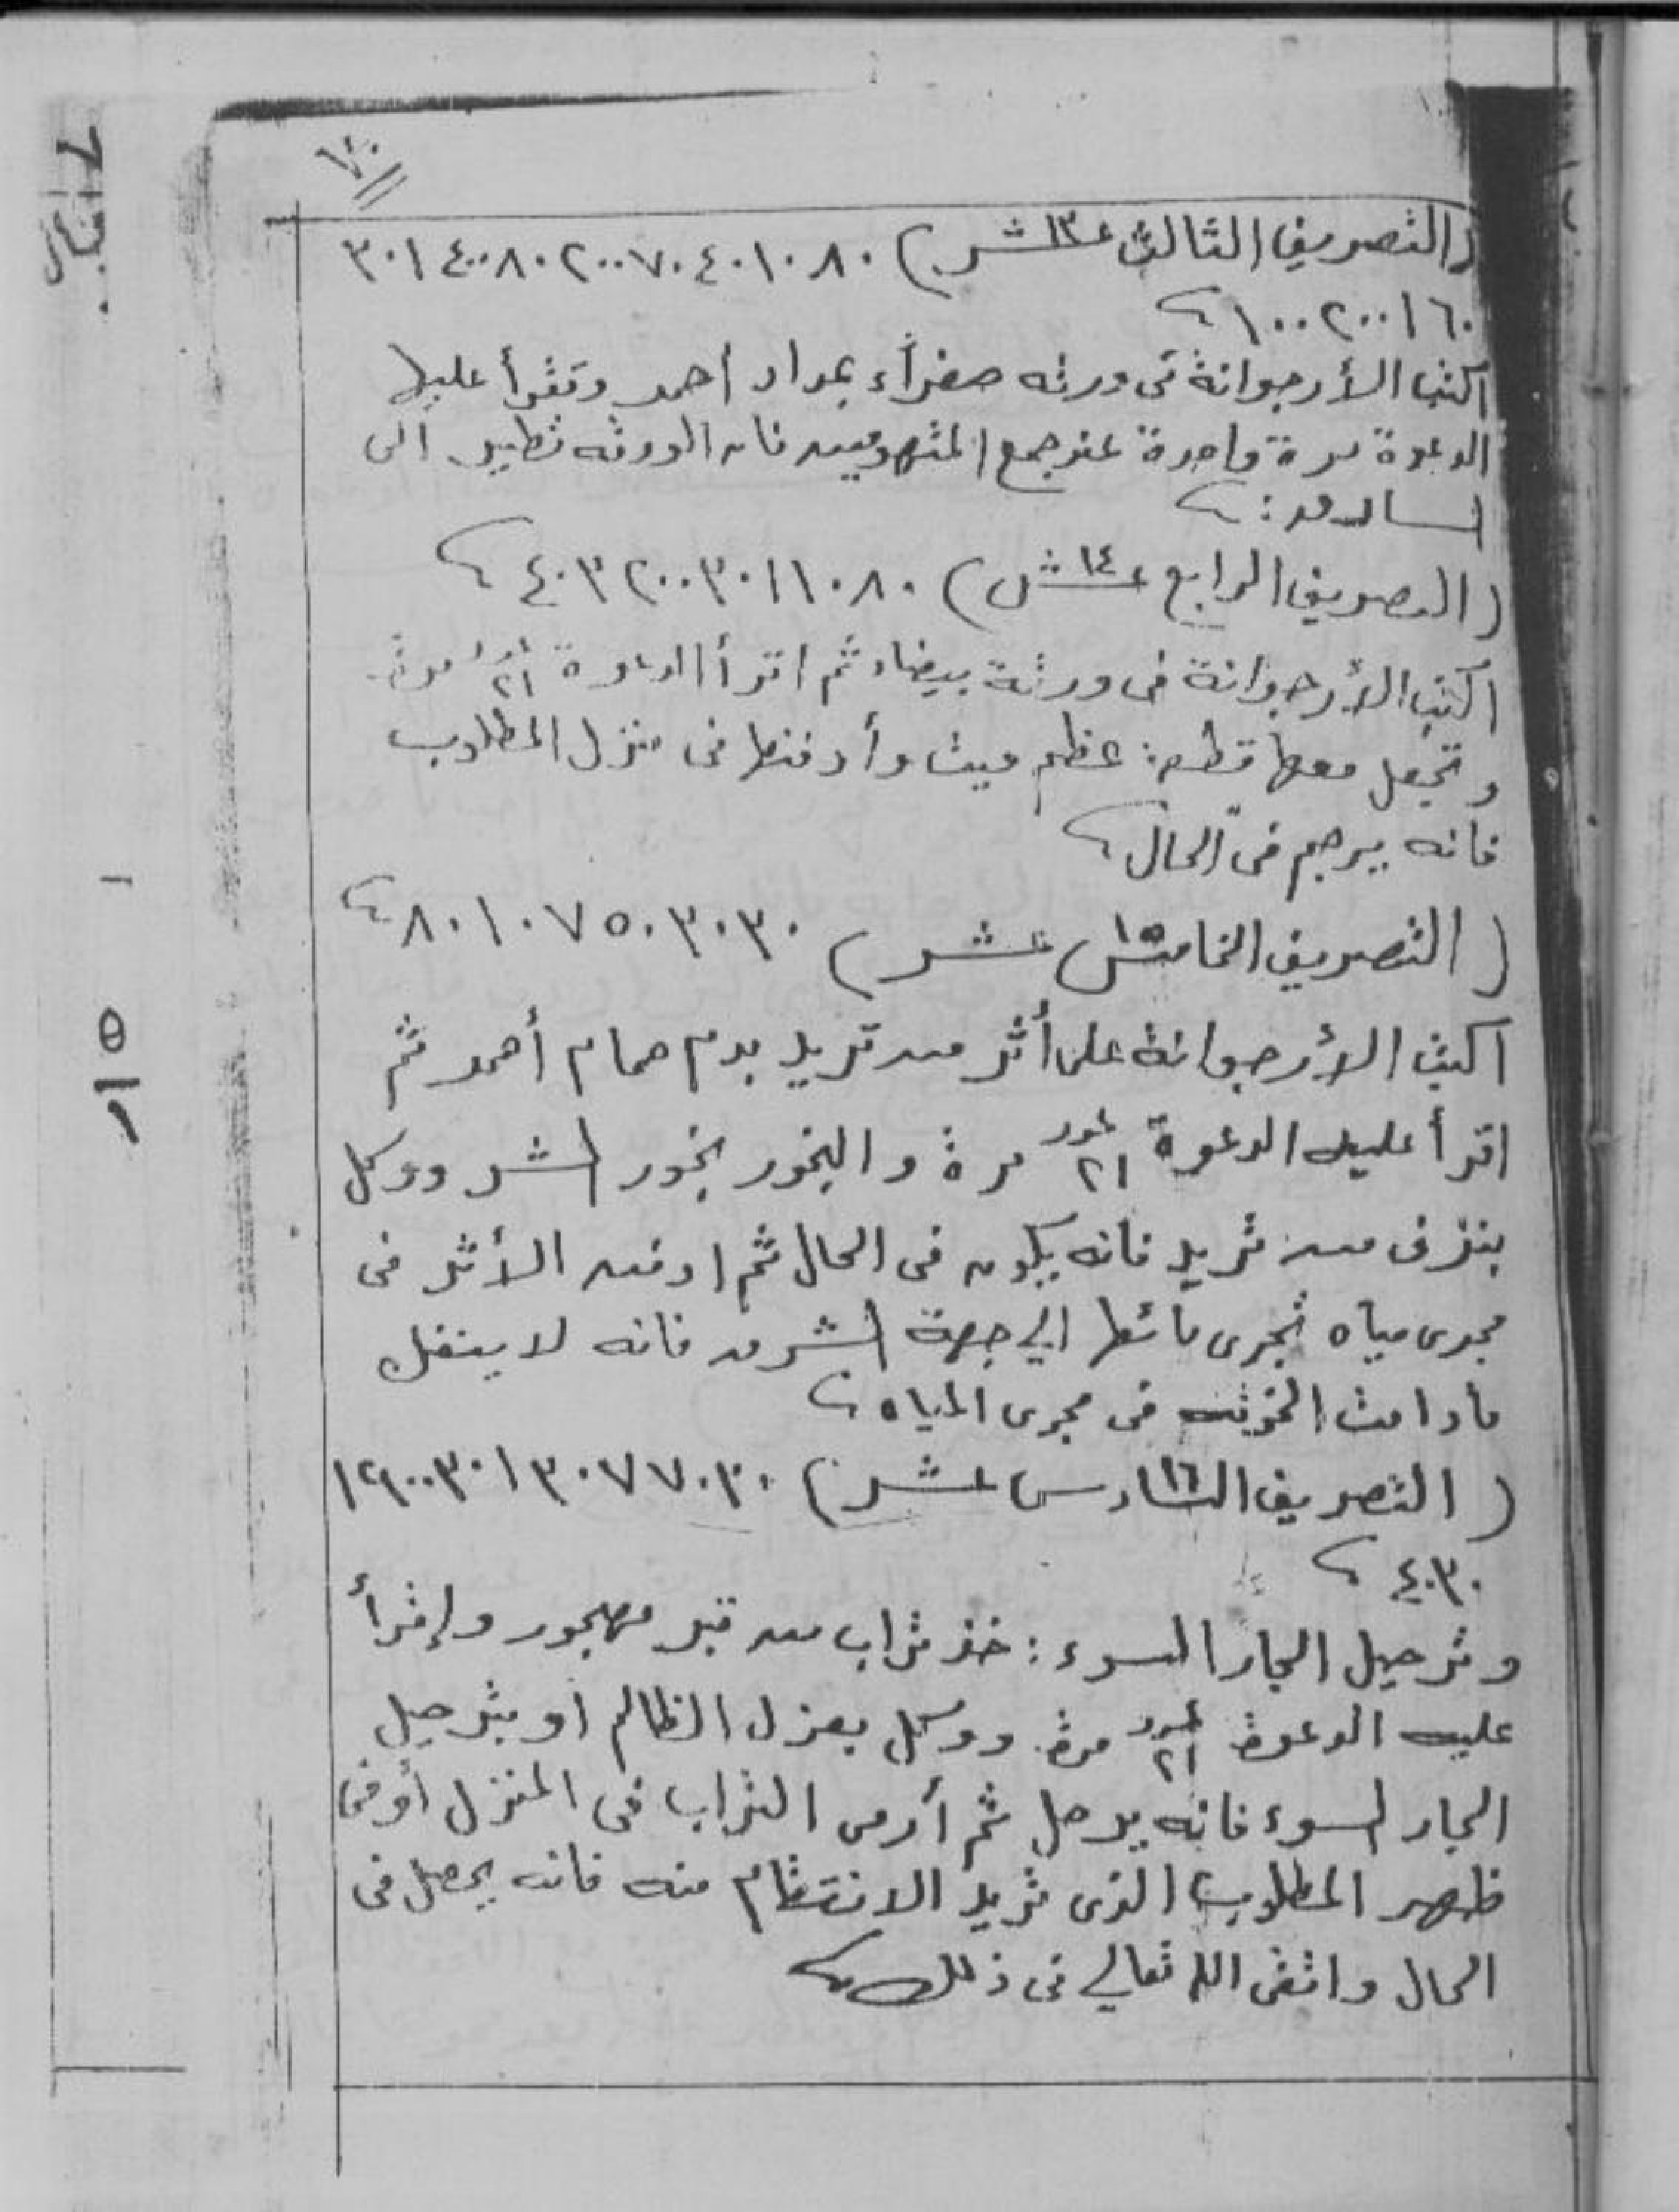 (التصريف الثالث ١٣ عشر) ٨٠ ١٠ ٤٠ ٧٠ ٢٠٠ ٨٠ ٤٠٠ ١ ٣٠
٦٠ ١ ٢٠٠ ١٠٠
اكتب الأرجوانة فى ورقه صفراء بمداد أحمر وتقرأ عليها
الدعوة مرة واحدة عند جمع المتهومين فان الورقه تطير الى
السارق :
(التصريف الرابع ١٤ عشر) ٨٠ ١٠ ١ ٣٠ ٢٠٠ ٣ ٤٠
اكتب الأرجوانة فى ورقة بيضاء ثم اقرأ الدعوة عدد ٢١ مرة
وتجعل معها قطعة عظم ميت وأدفنها فى منزل المطلوب
فانه يرجم فى الحال
(التصريف الخامس ١٥ عشر) ٣٠ ٣٠ ٥٠ ٧ ١٠ ٨٠
اكتب الأرجوانة على أثر من تريد بدم حمام أحمر ثم
اقرأ عليه الدعوة عدد ٢١ مرة والبخور بخور الشر ووكل
بنزف من تريد فانه يكون فى الحال ثم ادفن الأثر فى
مجرى مياه تجرى مائها الي جهة الشرق فانه لا ينفك
مادامت فى مجرى المياه
(التصريف السادس ١٦ عشر) ٣٠ ٧٠ ٧ ٣٠ ١ ٣٠ ٩٠٠ ١٢
٣٠ ٤٠
وترحيل الجار السوء : خذ تراب من قبر مهجور وإقرأ
عليه الدعوة عدد ٢١ مرة ووكل بعزل الظالم أو بترحيل
الجار السوء فانه يرحل ثم أرمى التراب فى المنزل أو فى
ظهر المطلوب الذى تريد الانتقام منه فانه يحصل فى
الحال واتقى الله تعالي فى ذلك